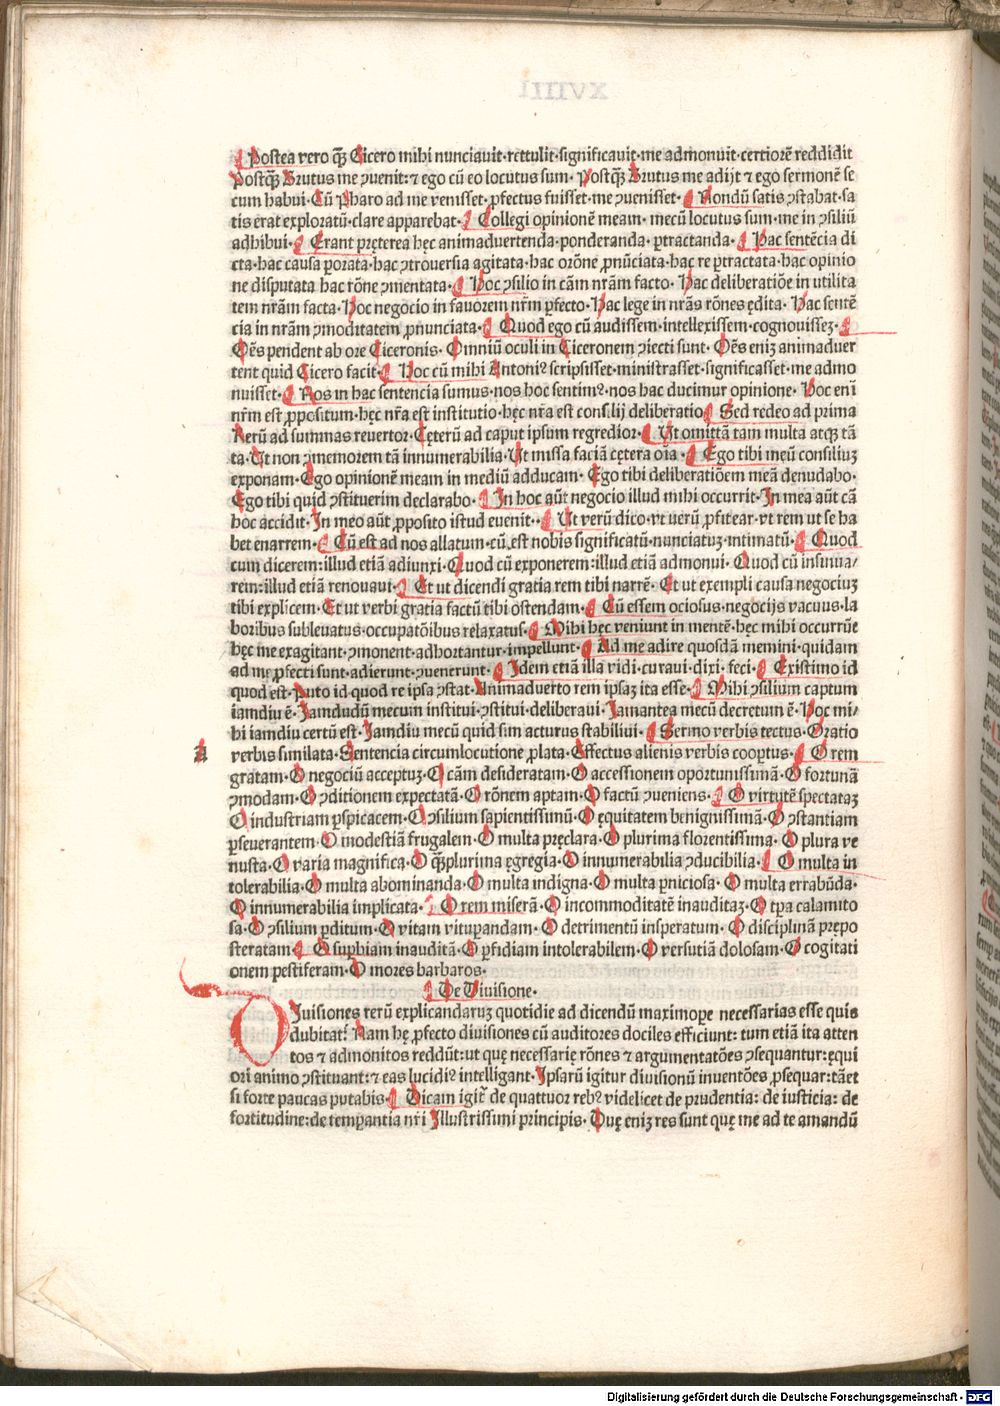 ¶ Postea vero qȝ Cicero mihi nunciauit·rettulit·significauit·me admonuit·certiorē reddidit
Postqȝ Brutus me ↄuenit: ⁊ ego cū eo locutus sum· Postqȝ Brutus me adijt ⁊ ego sermonē se
cum habui· Cū Pharo ad me venisset· ꝓfectus fuisset·me ↄuenisset· ¶ Nondū satis ↄstabat·sa
tis erat exploratū·clare apparebat· ¶ Collegi opinionē meam· mecū locutus sum·me in ↄsiliū
adhibui· ¶ Erant pręterea hęc animaduertenda·ponderanda· ꝑtractanda· ¶ Hac sentēcia di
cta·hac causa ꝑorata·hac ↄtrouersia agitata·hac orōne ꝓnūciata·hac re ꝑtractata·hac opinio
ne disputata hac rōne ↄmentata· ¶ Hoc ↄsilio in cām nrām facto· Hac deliberatiōe in vtilita
tem nrām facta· Hoc negocio in fauorem nrm̄ ꝑfecto· Hac lege in nrās rōnes ędita· Hac sentē
cia in nrām ↄmoditatem ꝓnunciata· ¶ Quod ego cū audissem·intellexissem·cognouissez· ¶
Oēs pendent ab ore Ciceronis· Omniū oculi in Ciceronem ↄiecti sunt· Oēs eniz animaduer
tent quid Cicero facit· ¶ Hoc cū mihi Antoniꝰ scripsisset·ministrasset·significasset·me admo
nuisset· ¶ Nos in hac sentencia sumus·nos hoc sentimꝰ·nos hac ducimur opinione· Hoc enī
nrm̄ est ꝓpositum·hęc nrā est institutio·hęc nrā est consilij deliberatio ¶ Sed redeo ad prima
Rerū ad summas reuertor· Cęterū ad caput ipsum regredior· ¶ Ut omittā tam multa atqȝ tā
ta· Ut non ↄmemorem tā innumerabilia· Ut missa faciā cętera oīa · ¶ Ego tibi meū consiliuz
exponam· Ego opinionē meam in mediū adducam· Ego tibi deliberatiōem meā denudabo·
Ego tibi quid ↄstituerim declarabo· ¶ In hoc aūt negocio illud mihi occurrit· In mea aūt cā
hoc accidit· In meo aūt ꝓposito istud euenit·· ¶ Ut verū dico·vt uerū ꝓfitear·vt rem ut se ha
bet enarrem· ¶ Cū est ad nos allatum·cū est nobis significatū·nunciatuz·intimatū· ¶ Quod
cum dicerem:illud etiā adiunxi· Quod cū exponerem:illud etiā admonui· Quod cū insinua/
rem:illud etiā renouaui· ¶ Et ut dicendi gratia rem tibi narrē· Et ut exempli causa negociuz
tibi explicem· Et ut verbi gratia factū tibi ostendam· ¶ Cū essem ociosus·negocijs vacuus·la
boribus subleuatus·occupatōibus relaxatus· ¶ Mihi hęc veniunt in mentē·hęc mihi occurrūt
hęc me exagitant·ↄmonent·adhortantur·impellunt· ¶ Ad me adire quosdā memini·quidam
ad me ꝓfecti sunt·adierunt·ↄuenerunt· ¶ Idem etiā illa vidi·curaui·dixi·feci· ¶ Existimo id
quod est· Puto id quod re ipsa ↄstat· Animaduerto rem ipsaz ita esse· ¶ Mihi ↄsilium captum
iamdiu ē· Jamdudū mecum institui·ↄstitui·deliberaui· Jamantea mecū decretum ē· Hoc mi/
hi iamdiu certū est· Jamdiu mecū quid sim acturus stabiliui· ¶ Sermo verbis tectus· Oratio
verbis simulata· Sentencia circumlocutione ꝓlata· Effectus alienis verbis cooptus· ¶ O rem
gratam· O negociū acceptuz· O cām desideratam· O accessionem oportunissimā· O fortunā
ↄmodam· O ↄditionem expectatā· O rōnem aptam· O factū ↄueniens· ¶ O virtutē spectataz
O industriam ꝑspicacem· O ↄsilium sapientissimū· O ęquitatem benignissimā· O ↄstantiam
ꝑseuerantem· O modestiā frugalem· O multa pręclara· O plurima florentissima· O plura ve
nusta· O varia magnifica· O qȝplurima ęgregia· O innumerabilia ↄducibilia· ¶ O multa in
tolerabilia· O multa abominanda· O multa indigna· O multa ꝑniciosa· O multa errabūda·
O innumerabilia implicata· ¶ O rem miserā· O incommoditatē inauditaz· O tꝑa calamito
sa· O ↄsilium ꝑditum· O vitam vituꝑandam· O detrimentū insperatum· O disciplinā prępo
steratam· ¶ O suꝑbiam inauditā· O ꝑfidiam intolerabilem· O versutiā dolosam· O cogitati
onem pestiferam· O mores barbaros·
¶ De Diuisione·
DJuisiones rerū explicandaruz quotidie ad dicendū maximope necessarias esse quis
dubitat: Nam hę ꝓfecto diuisiones cū auditores dociles efficiunt: tum etiā ita atten
tos ⁊ admonitos reddūt:ut quę necessarię rōnes ⁊ argumentatōes ↄsequantur:ęqui
ori animo ↄstituant:⁊ eas lucidiꝰ intelligant· Ipsarū igitur diuisionū inuentōes ꝓsequar:tāet
si forte paucas putabis· ¶ Dicam igiē de quattuor rebꝰ videlicet de prudentia: de iusticia: de
fortitudine:de temperantia nrī Illustrissimi principis· Quę eniz res sunt quę me ad te amandū